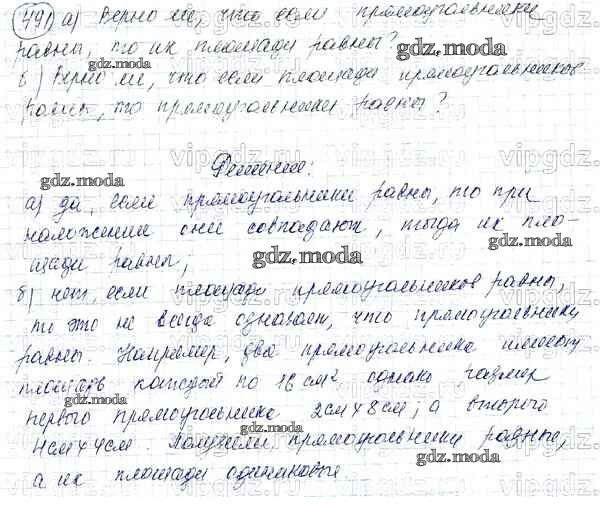 491 а) Верно ли, что если прямоугольники
равны, то их площади равны?
б) Верно ли, что если площади прямоугольников
равны, то прямоугольники равны?
Решение:
а) да, если прямоугольники равны, то при
наложении они совпадают, тогда их пло-
щади равны;
б) нет, если площади прямоугольников равны,
то это не всегда означает, что прямоугольники
равны. Например, два прямоугольника имеют
площадь каждый по 16 см², однако размер
первого прямоугольника 2см х 8см, а второго
4см х 4см. Получили прямоугольники разные,
а их площади одинаковые.
gdz.moda
gdz.moda
gdz.moda
gdz.moda
gdz.moda
gdz.moda
gdz.moda
gdz.moda
gdz.moda
gdz.moda